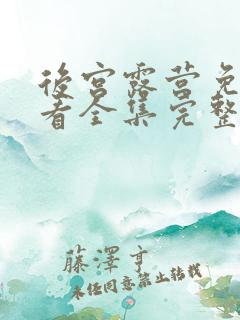 後宮露営免
看全集完整
藤澤亨
未经同意禁止转载